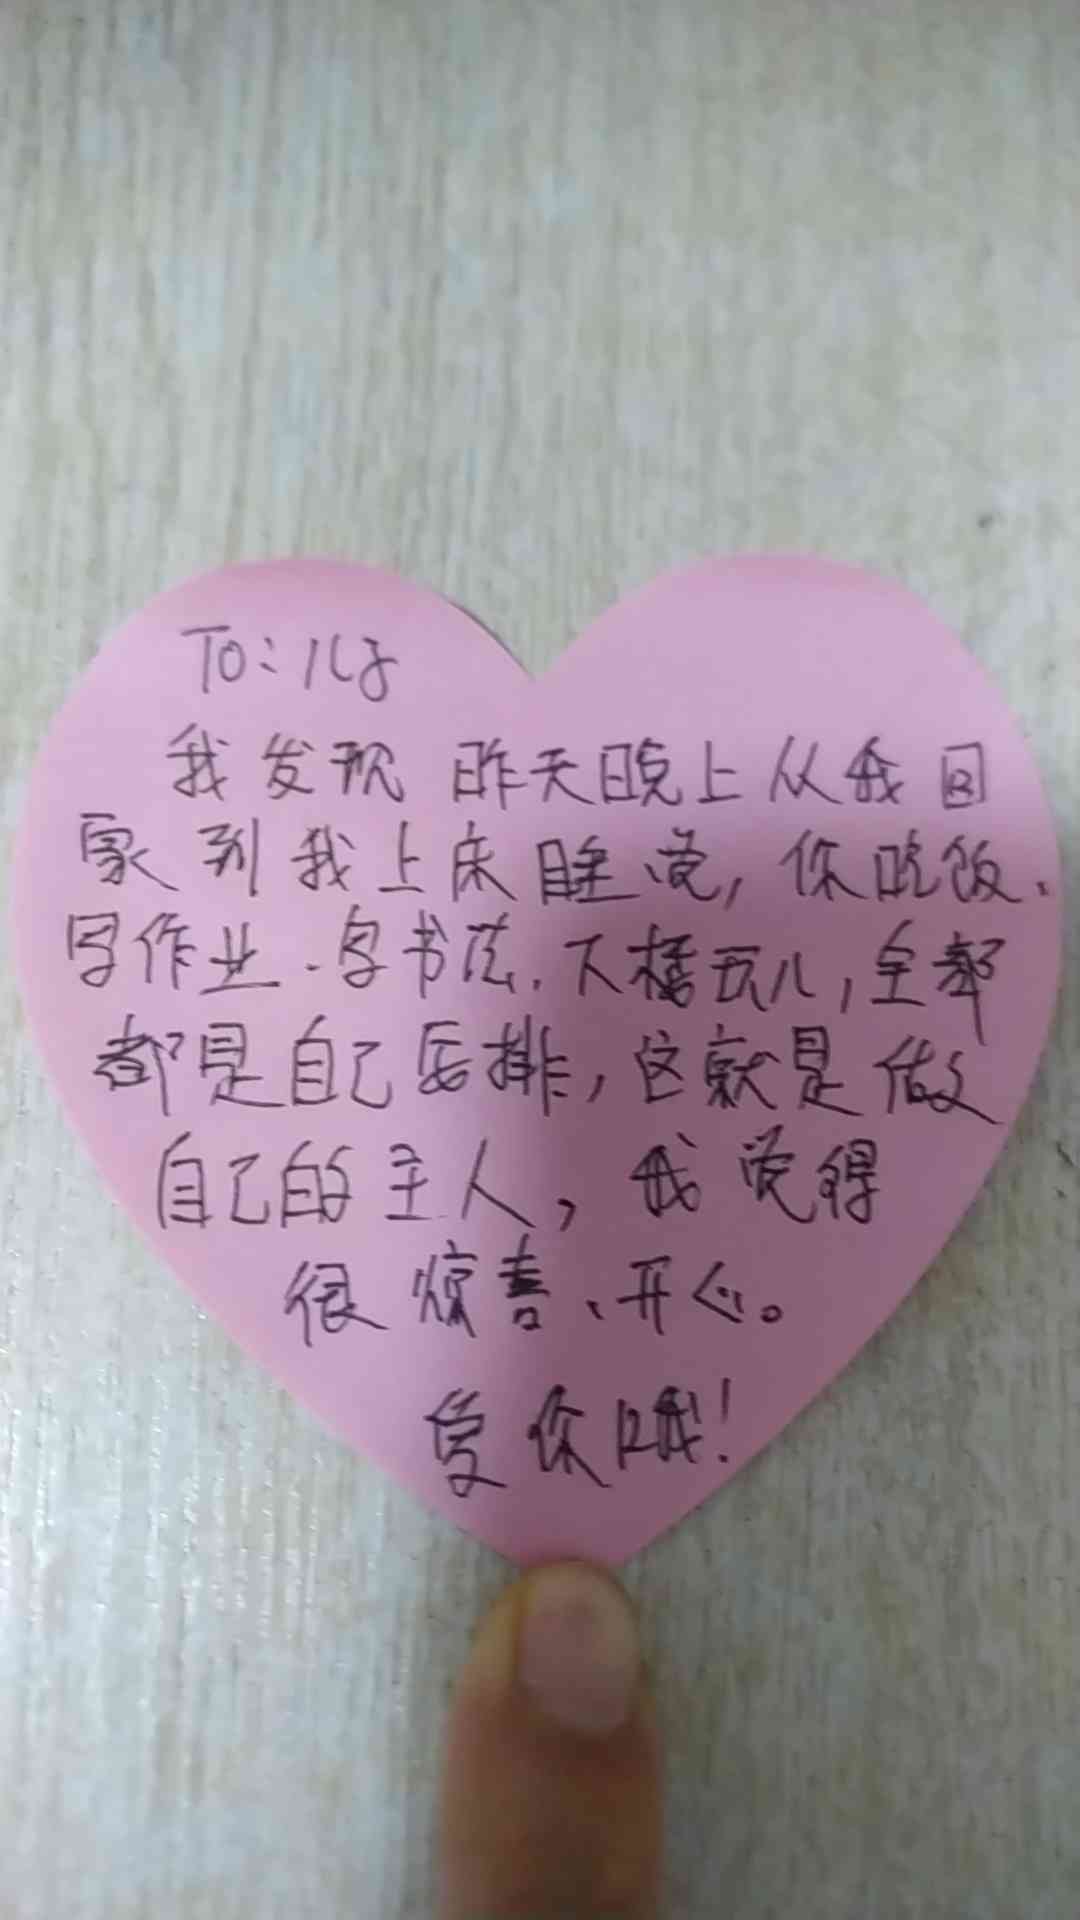 To:儿子
我发现昨天晚上从我回
家到我上床睡觉,你吃饭、
写作业、写书法、下楼玩儿,全部
都是自己安排,这就是做
自己的主人,我觉得
很惊喜、开心。
爱你哦!